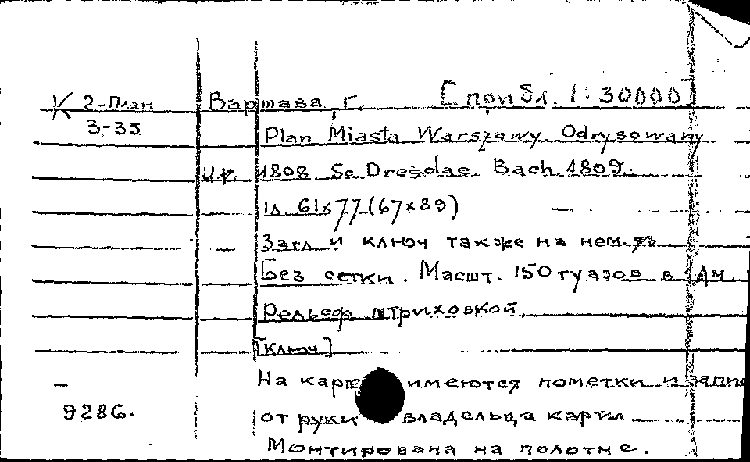 К 2-План Варшава г. [прибл. 1:30000]
3-35 Plan Miasta Warszawy Odrysowany
1808. Se Dresdae. Bach 1809.
1 л. 61x77 (67x89)
Загл. и ключ также на нем. яз.
Без сетки. Масшт. 150 туазов в дм.
Рельеф штриховкой.
[Ключ]
На карте имеются пометки и
9286. от руки владельца карты
Монтирована на полотне.